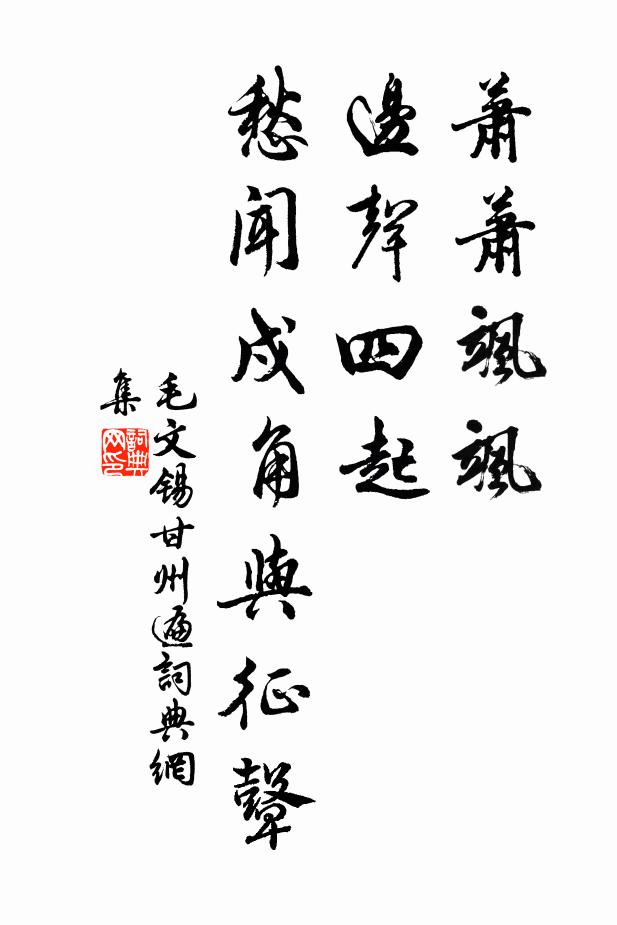 蕭蕭颯颯
邊聲四起
愁聞戍角與征鼙
毛文錫甘州遍詞典網
集
詞典網印